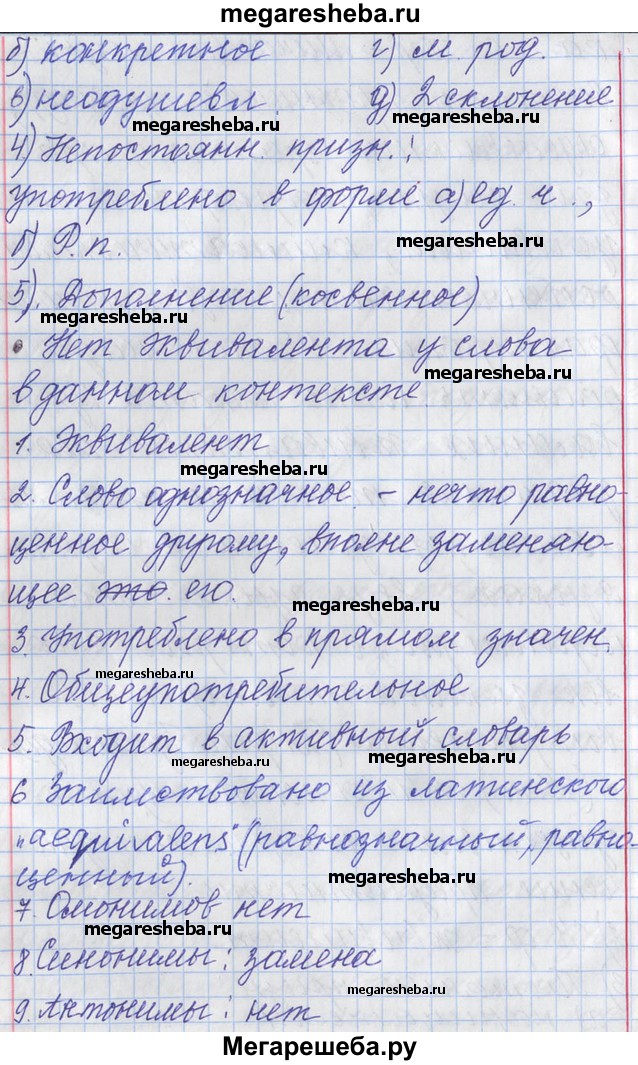 megaresheba.ru
б) конкретное г) м. род.
в) неодушевл. д) 2 склонение
megaresheba.ru megaresheba.ru
4) Непостоянн. призн.:
употреблено в форме а) ед. ч.,
б) Р. п. megaresheba.ru
5). Дополнение (косвенное)
megaresheba.ru
• Нет эквивалента у слова
megaresheba.ru
в данном контексте
1. Эквивалент
megaresheba.ru
2. Слово однозначное. - нечто равно-
ценное другому, вполне заменяю-
щее это. его.
megaresheba.ru
3. Употреблено в прямом значен.
megaresheba.ru
4. Общеупотребительное
5. Входит в активный словарь
megaresheba.ru megaresheba.ru
6 Заимствовано из латинского
"aequivalens" (равнозначный, равно-
ценный). megaresheba.ru
7. Омонимов нет
megaresheba.ru
8. Синонимы: замена
megaresheba.ru
9. Антонимы: нет
Мегарешеба.ру